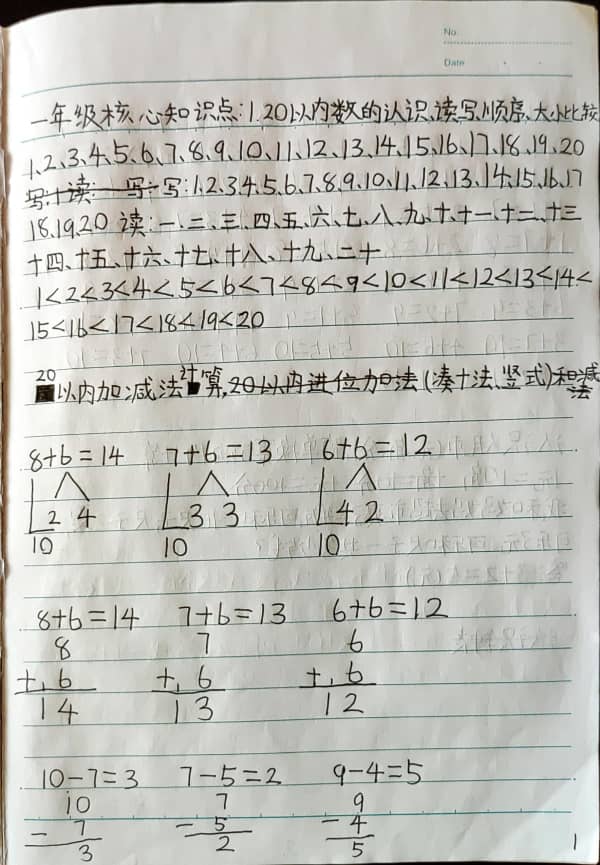 No.
Date
一年级核心知识点:1.20以内数的认识、读写、顺序、大小比较
1、2、3、4、5、6、7、8、9、10、11、12、13、14、15、16、17、18、19、20
写:十读:一写:写:1、2、3、4、5、6、7、8、9、10、11、12、13、14、15、16、17
18、19、20 读:一、二、三、四、五、六、七、八、九、十、十一、十二、十三
十四、十五、十六、十七、十八、十九、二十
1<2<3<4<5<6<7<8<9<10<11<12<13<14<
15<16<17<18<19<20
20以内加减法计算,20以内进位加法(凑十法、竖式)和减法
8+6=14 7+6=13 6+6=12
2 4 3 3 4 2
10 10 10
8+6=14 7+6=13 6+6=12
8 7 6
+ 6 + 6 + 6
14 13 12
10-7=3 7-5=2 9-4=5
10 7 9
- 7 - 5 - 4
3 2 5
1